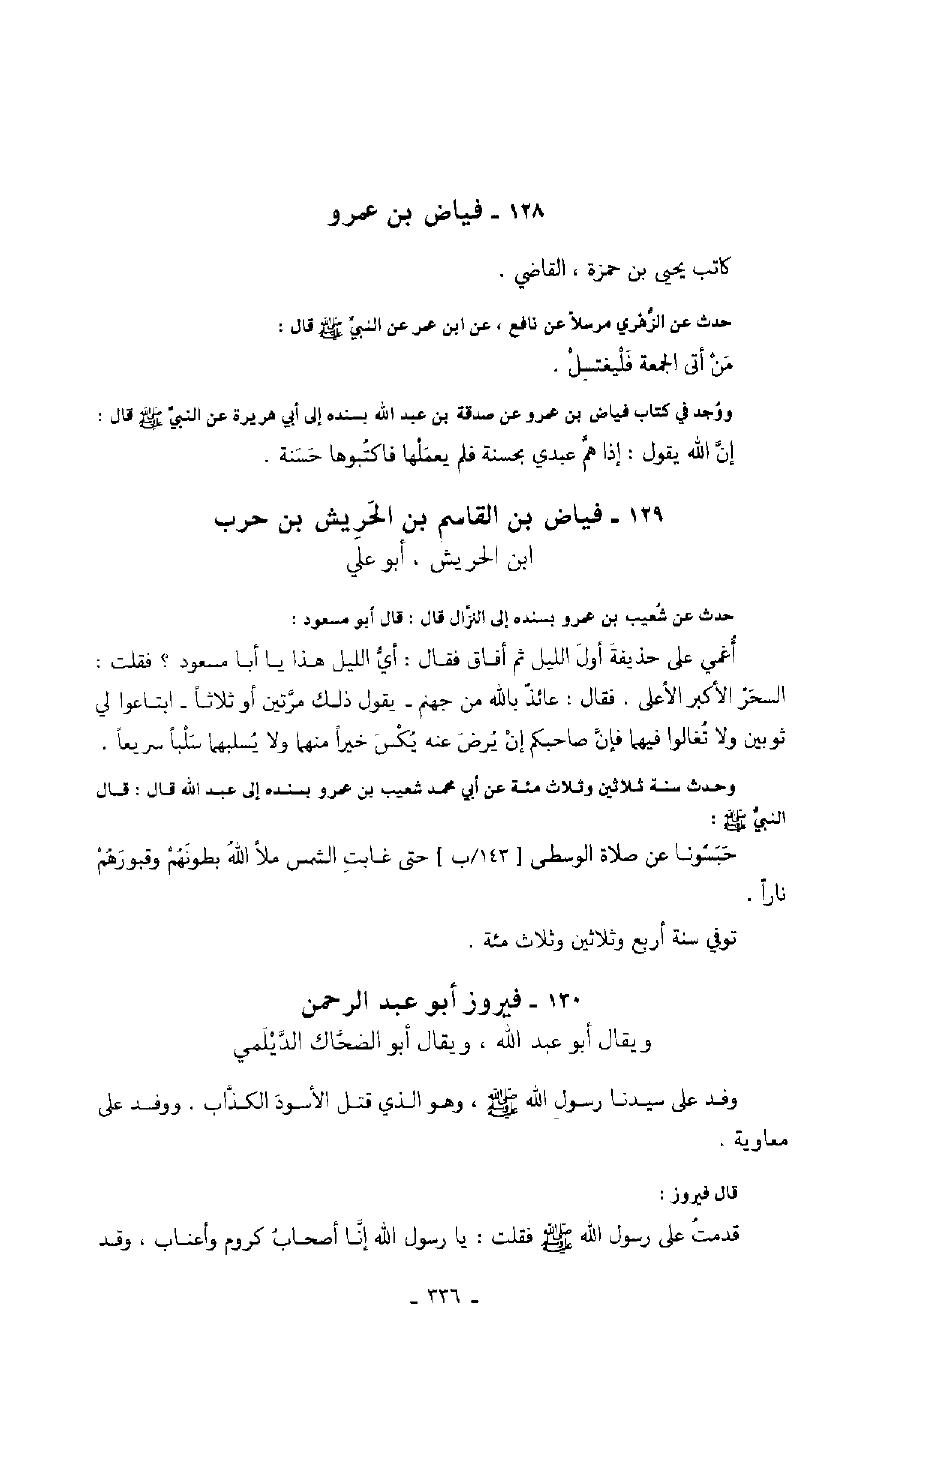 ١٢٨ - فياض بن عمرو
كاتب يحيى بن حمزة ، القاضي .
حدث عن الزُّهري مرسلاً عن نافع ، عن ابن عمر عن النبيّ ﷺ قال :
مَنْ أتى الجمعة فَلْيغتسِلْ .
ووُجد في كتاب فياض بن عمرو عن صدقة بن عبد الله بسنده إلى أبي هريرة عن النبيّ ﷺ قال :
إنَّ الله يقول : إذا همَّ عبدي بحسنة فلم يعمَلْها فاكتُبوها حَسَنة .
١٢٩ - فياض بن القاسم بن الحَرِيش بن حرب
ابن الحريش ، أبو عليّ
حدث عن شُعيب بن عمرو بسنده إلى النزَّال قال : قال أبو مسعود :
أُغمي على حذيفةَ أولَ الليل ثم أفاق فقال : أيُّ الليل هذا يا أبا مسعود ؟ فقلت :
السحَرُ الأكبر الأعلى . فقال : عائذٌ بالله من جهنم - يقول ذلك مرَّتين أو ثلاثاً - ابتاعوا لي
ثوبين ولا تُغالوا فيها فإنَّ صاحبكم إنْ يُرضَ عنه يُكْسَ خيراً منهما ولا يُسلبها سَلْباً سريعاً .
وحدث سنة ثلاثين وثلاث مئة عن أبي محمد شعيب بن عمرو بسنده إلى عبد الله قال : قال
النبيُّ ﷺ :
حَبَسُونا عن صلاة الوسطى [ ١٤٣/ب ] حتى غابتِ الشمس ملأ اللهُ بطونَهُمْ وقبورَهُمْ
ناراً .
توفي سنة أربع وثلاثين وثلاث مئة .
١٣٠ - فيروز أبو عبد الرحمن
ويقال أبو عبد الله ، ويقال أبو الضحَّاك الدَّيْلَمي
وفد على سيدنا رسول الله ﷺ ، وهو الذي قتل الأسودَ الكذَّاب . ووفد على
معاوية .
قال فيروز :
قدمتُ على رسول الله ﷺ فقلت : يا رسول الله إنَّا أصحابُ كروم وأعناب ، وقد
- ٣٣٦ -